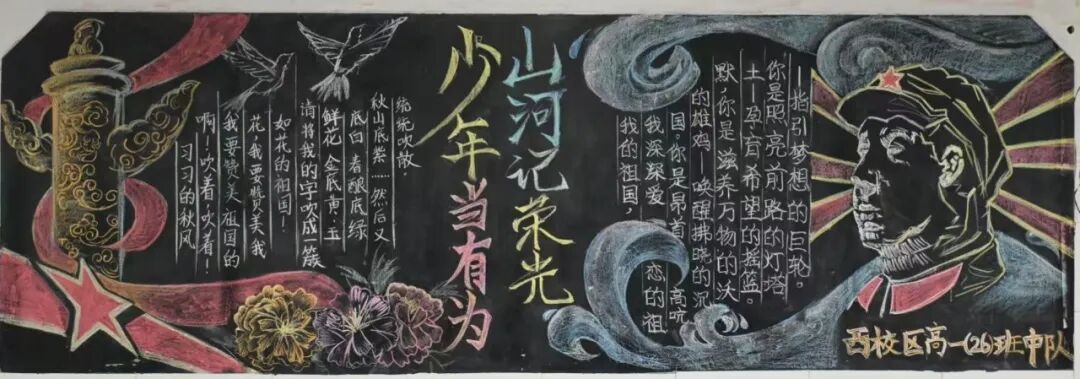 习习的秋风
啊！吹着！吹着！
我要赞美祖国的
花！我要赞美我
如花的祖国！
请将我的字吹成一簇
鲜花，金底黄，玉
底白，春酿底绿，
秋山底紫……然后又
统统吹散，
少年当有为
山河记荣光
我的祖国，
我深深爱恋的祖
国，你是昂首高吭
的雄鸡—唤醒拂晓的沉
默，你是滋养万物的沃
土—孕育希望的摇篮。
你是照亮前路的灯塔
—指引梦想的巨轮。
西校区高一(26)班中队